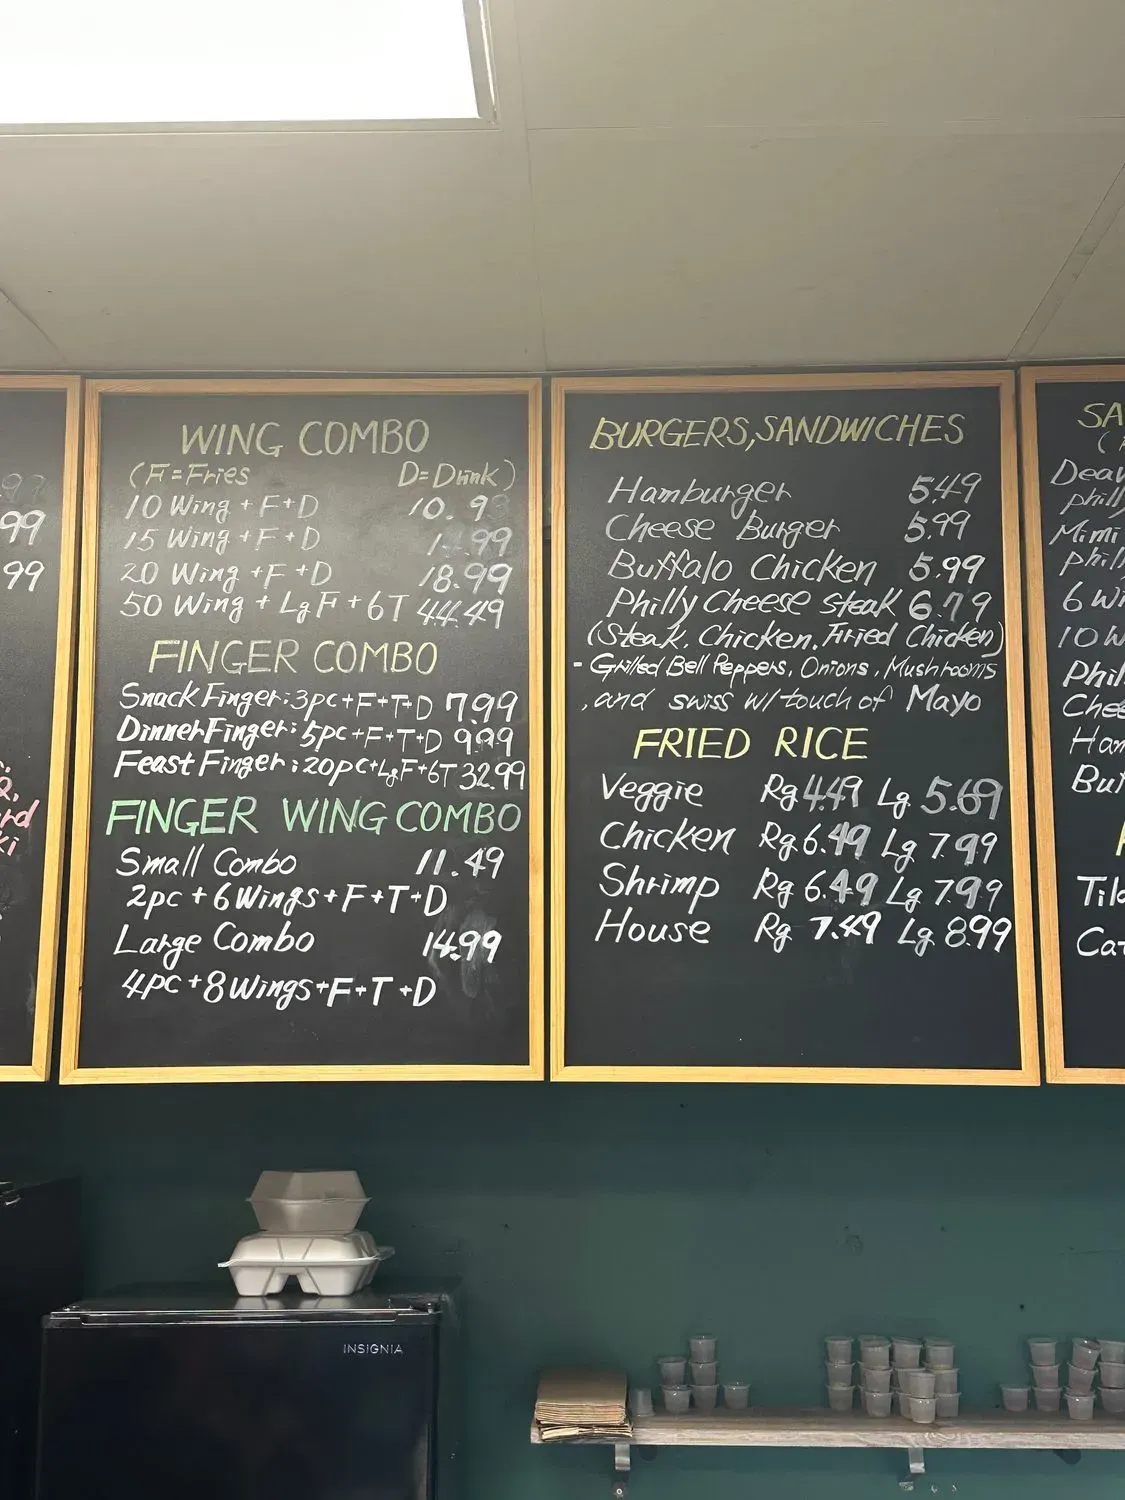 99
99
99
WING COMBO
(F=Fries D=Drink)
10 Wing + F+D 10.9
15 Wing + F+D 99
20 Wing +F+D 18.99
50 Wing + Lg F + 6T 44.49
FINGER COMBO
Snack Finger: 3pc+F+T+D 7.99
Dinner Finger: 5pc+F+T+D 9.99
Feast Finger: 20pc+LgF+6T 32.99
FINGER WING COMBO
Small Combo 11.49
2pc + 6 Wings + F + T + D
Large Combo 14.99
4pc + 8 Wings + F + T + D
BURGERS, SANDWICHES
Hamburger 5.49
Cheese Burger 5.99
Buffalo Chicken 5.99
Philly Cheese Steak 6.79
(Steak, Chicken, Fried Chicken)
- Grilled Bell Peppers, Onions, Mushrooms
, and swiss w/ touch of Mayo
FRIED RICE
Veggie Rg 4.49 Lg 5.69
Chicken Rg 6.49 Lg 7.99
Shrimp Rg 6.49 Lg 7.99
House Rg 7.49 Lg 8.99
SA
Philly
Mimi
6 Wi
10 W
Phil
Chee
Ham
INSIGNIA